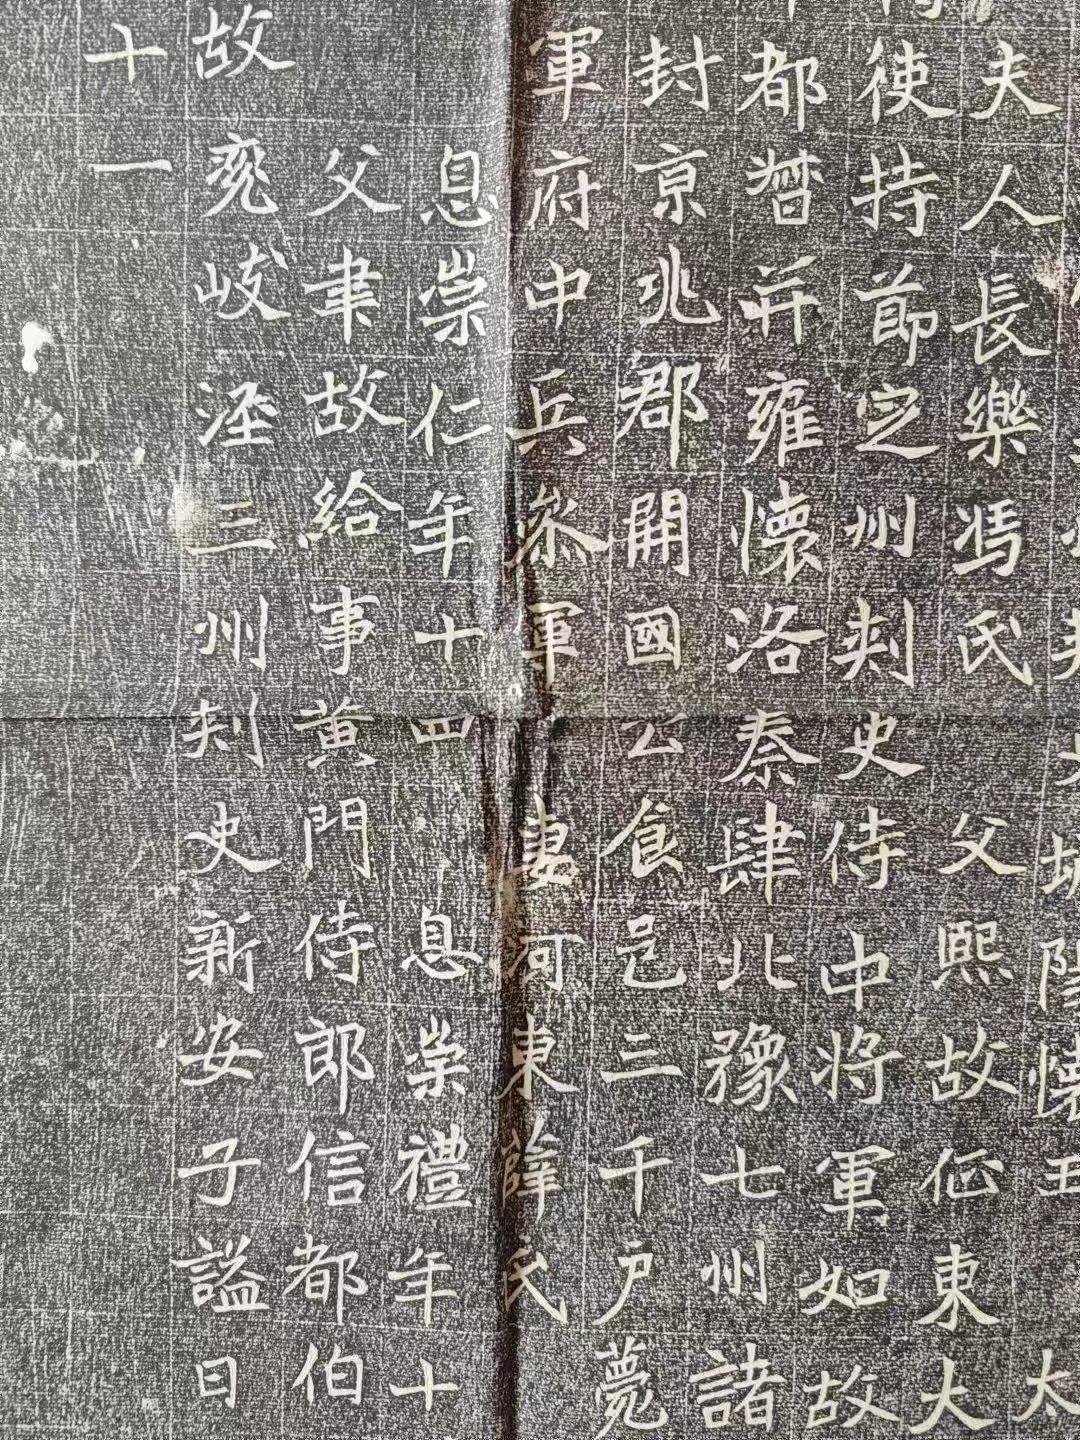 城陽懷 太
夫人長樂馮氏 父熙故征東大
使持節定州刺史侍中將軍如故
都督并雍懷洛秦肆北豫七州諸
封京兆郡開國公食邑三千戶薨
軍府中兵參軍 妻河東薛氏
息崇仁年十四 息崇禮年十
父聿故給事黃門侍郎信都伯
故兗岐涇三州刺史新安子謚曰
十一